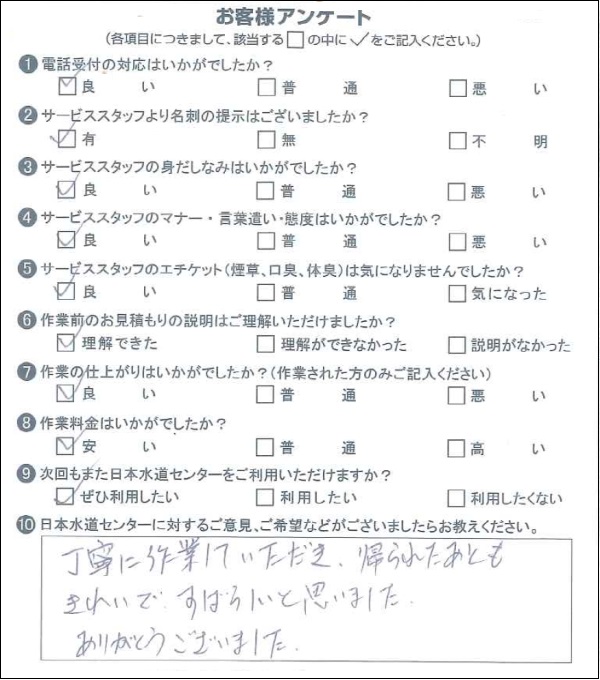 お客様アンケート
(各項目につきまして、該当する□の中に✓をご記入ください。)
❶ 電話受付の対応はいかがでしたか？
☑ 良い □ 普通 □ 悪い
❷ サービススタッフより名刺の提示はございましたか？
☑ 有 □ 無 □ 不明
❸ サービススタッフの身だしなみはいかがでしたか？
☑ 良い □ 普通 □ 悪い
❹ サービススタッフのマナー・言葉遣い・態度はいかがでしたか？
☑ 良い □ 普通 □ 悪い
❺ サービススタッフのエチケット(煙草、口臭、体臭)は気になりませんでしたか？
☑ 良い □ 普通 □ 気になった
❻ 作業前のお見積もりの説明はご理解いただけましたか？
☑ 理解できた □ 理解ができなかった □ 説明がなかった
❼ 作業の仕上がりはいかがでしたか？(作業された方のみご記入ください)
☑ 良い □ 普通 □ 悪い
❽ 作業料金はいかがでしたか？
☑ 安い □ 普通 □ 高い
❾ 次回もまた日本水道センターをご利用いただけますか？
☑ ぜひ利用したい □ 利用したい □ 利用したくない
❿ 日本水道センターに対するご意見、ご希望などがございましたらお教えください。
丁寧に作業していただき、帰られたあとも
きれいで、すばらしいと思いました.
ありがとうございました.